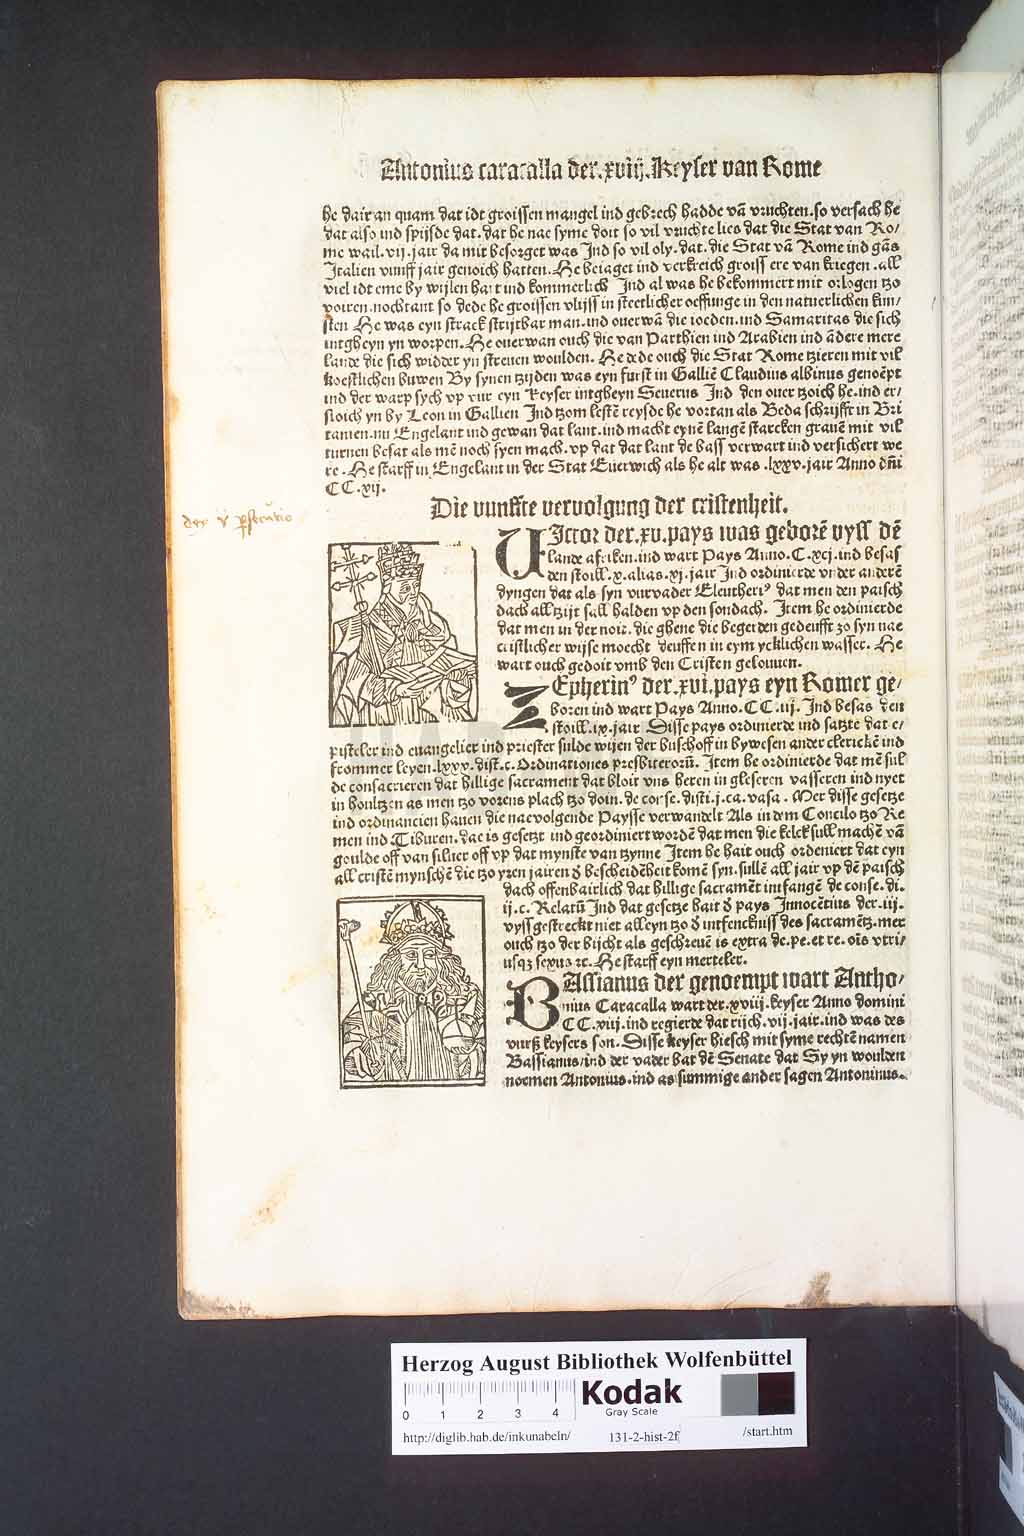 Antonius caracalla der.xviij.Keyser van Rome
he dair an quam dat idt groissen mangel ind gebrech hadde vā vruchten.so versach he
dat also ind spijsde dat.dat he nae syme doit so vil vruchte lies dat die Stat van Ro/
me wail.vij.jair da mit besorget was Ind so vil oly.dat.die Stat vā Rome ind gās
Italien vunff jair genoich hatten.He beiaget ind verkreich groiss ere van kriegen.all
viel idt eme by wijlen hart ind kommerlich Ind al was he bekommert mit orlogen tzo
voiren.nochtant so dede he groissen vlijss in steetlicher oeffunge in den natuerlichen kun/
sten He was eyn strack strijtbar man.ind ouerwā die ioeden.ind Samaritas die sich
intgheyn yn worpen.He ouerwan ouch die van Parthien ind Arabien ind ādere mere
lande die sich widder yn streuen woulden. He dede ouch die Stat Rome tzieren mit vil
koestlichen buwen By synen tzijden was eyn furst in Galliē Claudius albinus genoēpt
ind der warp sych vp vur eyn Keyser intgheyn Seuerus Ind den ouer tzoich he.ind er/
sloich yn by Leon in Gallien Ind tzom lestē reysde he vortan als Beda schrijfft in Bri
tanien.nu Engelant ind gewan dat lant.ind macht eynē langē starcken grauē mit vil
turnen besat als mē noch syen mach.vp dat dat lant de bass verwart ind versichert we
re.He starff in Engelant in der Stat Euerwich als he alt was.lxxv.jair Anno dn̄i
CC.xij.
der v p̲secutio
Die vunffte vervolgung der cristenheit.
VIctor der.xv.pays was geborē vyss dē
lande afriken.ind wart Pays Anno.C.xcj.ind besas
den stoill.x.alias.xj.jair Ind ordinierde vnder anderē
dyngen dat als syn vurvader Eleutheri⁹ dat men den paisch
dach all tzijt sall halden vp den sondach. Item he ordinierde
dat men in der noit.die ghene die begerden gedeufft zo syn nae
cristlicher wijse moecht deuffen in eym ycklichen wasser. He
wart ouch gedoit vmb den Cristen gelouuen.
ZEpherin⁹ der.xvi.pays eyn Romer ge/
boren ind wart Pays Anno.CC.iij. Ind besas den
stoill.ix.jair Disse pays ordinierde ind satzte dat e/
pisteler ind euangelier ind priester sulde wijen der buschoff in bywesen ander clerickē ind
frommer leyen.lxxv.dist.c.Ordinationes presbiterorū. Item he ordinierde dat mē sul
de consacrieren dat hillige sacrament dat bloit vns heren in gleseren vasseren ind nyet
in houltzen as men tzo vorens plach tzo doin.de conse.disti.j.ca.vasa. Mer disse gesetze
ind ordinancien hauen die naevolgende Paysse verwandelt Als in dem Concilo tzo Re
men ind Tiburen.dae is gesetzt ind geordiniert wordē dat men die kelck sull machē vā
goulde off van siluer off vp dat mynste van tzynne Item he hait ouch ordeniert dat eyn
all cristē mynschē die tzo yren jairen ꝺ bescheidēheit komē syn.sullē all jair vp dē paisch
dach offenbairlich dat hillige sacramēt intfangē de conse.di.
ij.c. Relatū Ind dat gesetze hait ꝺ pays Innocētius der.iij.
vyss gestreckt niet alleyn tzo ꝺ intfenckniss des sacramētz.mer
ouch tzo der bijcht als geschreuē is extra de.pe.et re.oīs vtri/
usqȝ sexus ꝛc.He starff eyn merteler.
BAssianus der genoempt wart Antho/
nius Caracalla wart der.xviij.keyser Anno domini
CC.xiij.ind regierde dat rijch.vij.jair.ind was des
vurß keysers son.Disse keyser hiesch mit syme rechtē namen
Bassianus/ind der vader bat dē Senate dat Sy yn woulden
noemen Antonius.ind as summige ander sagen Antoninus.
Herzog August Bibliothek Wolfenbüttel
0 1 2 3 4
Kodak
Gray Scale
http://diglib.hab.de/inkunabeln/ 131-2-hist-2f /start.htm